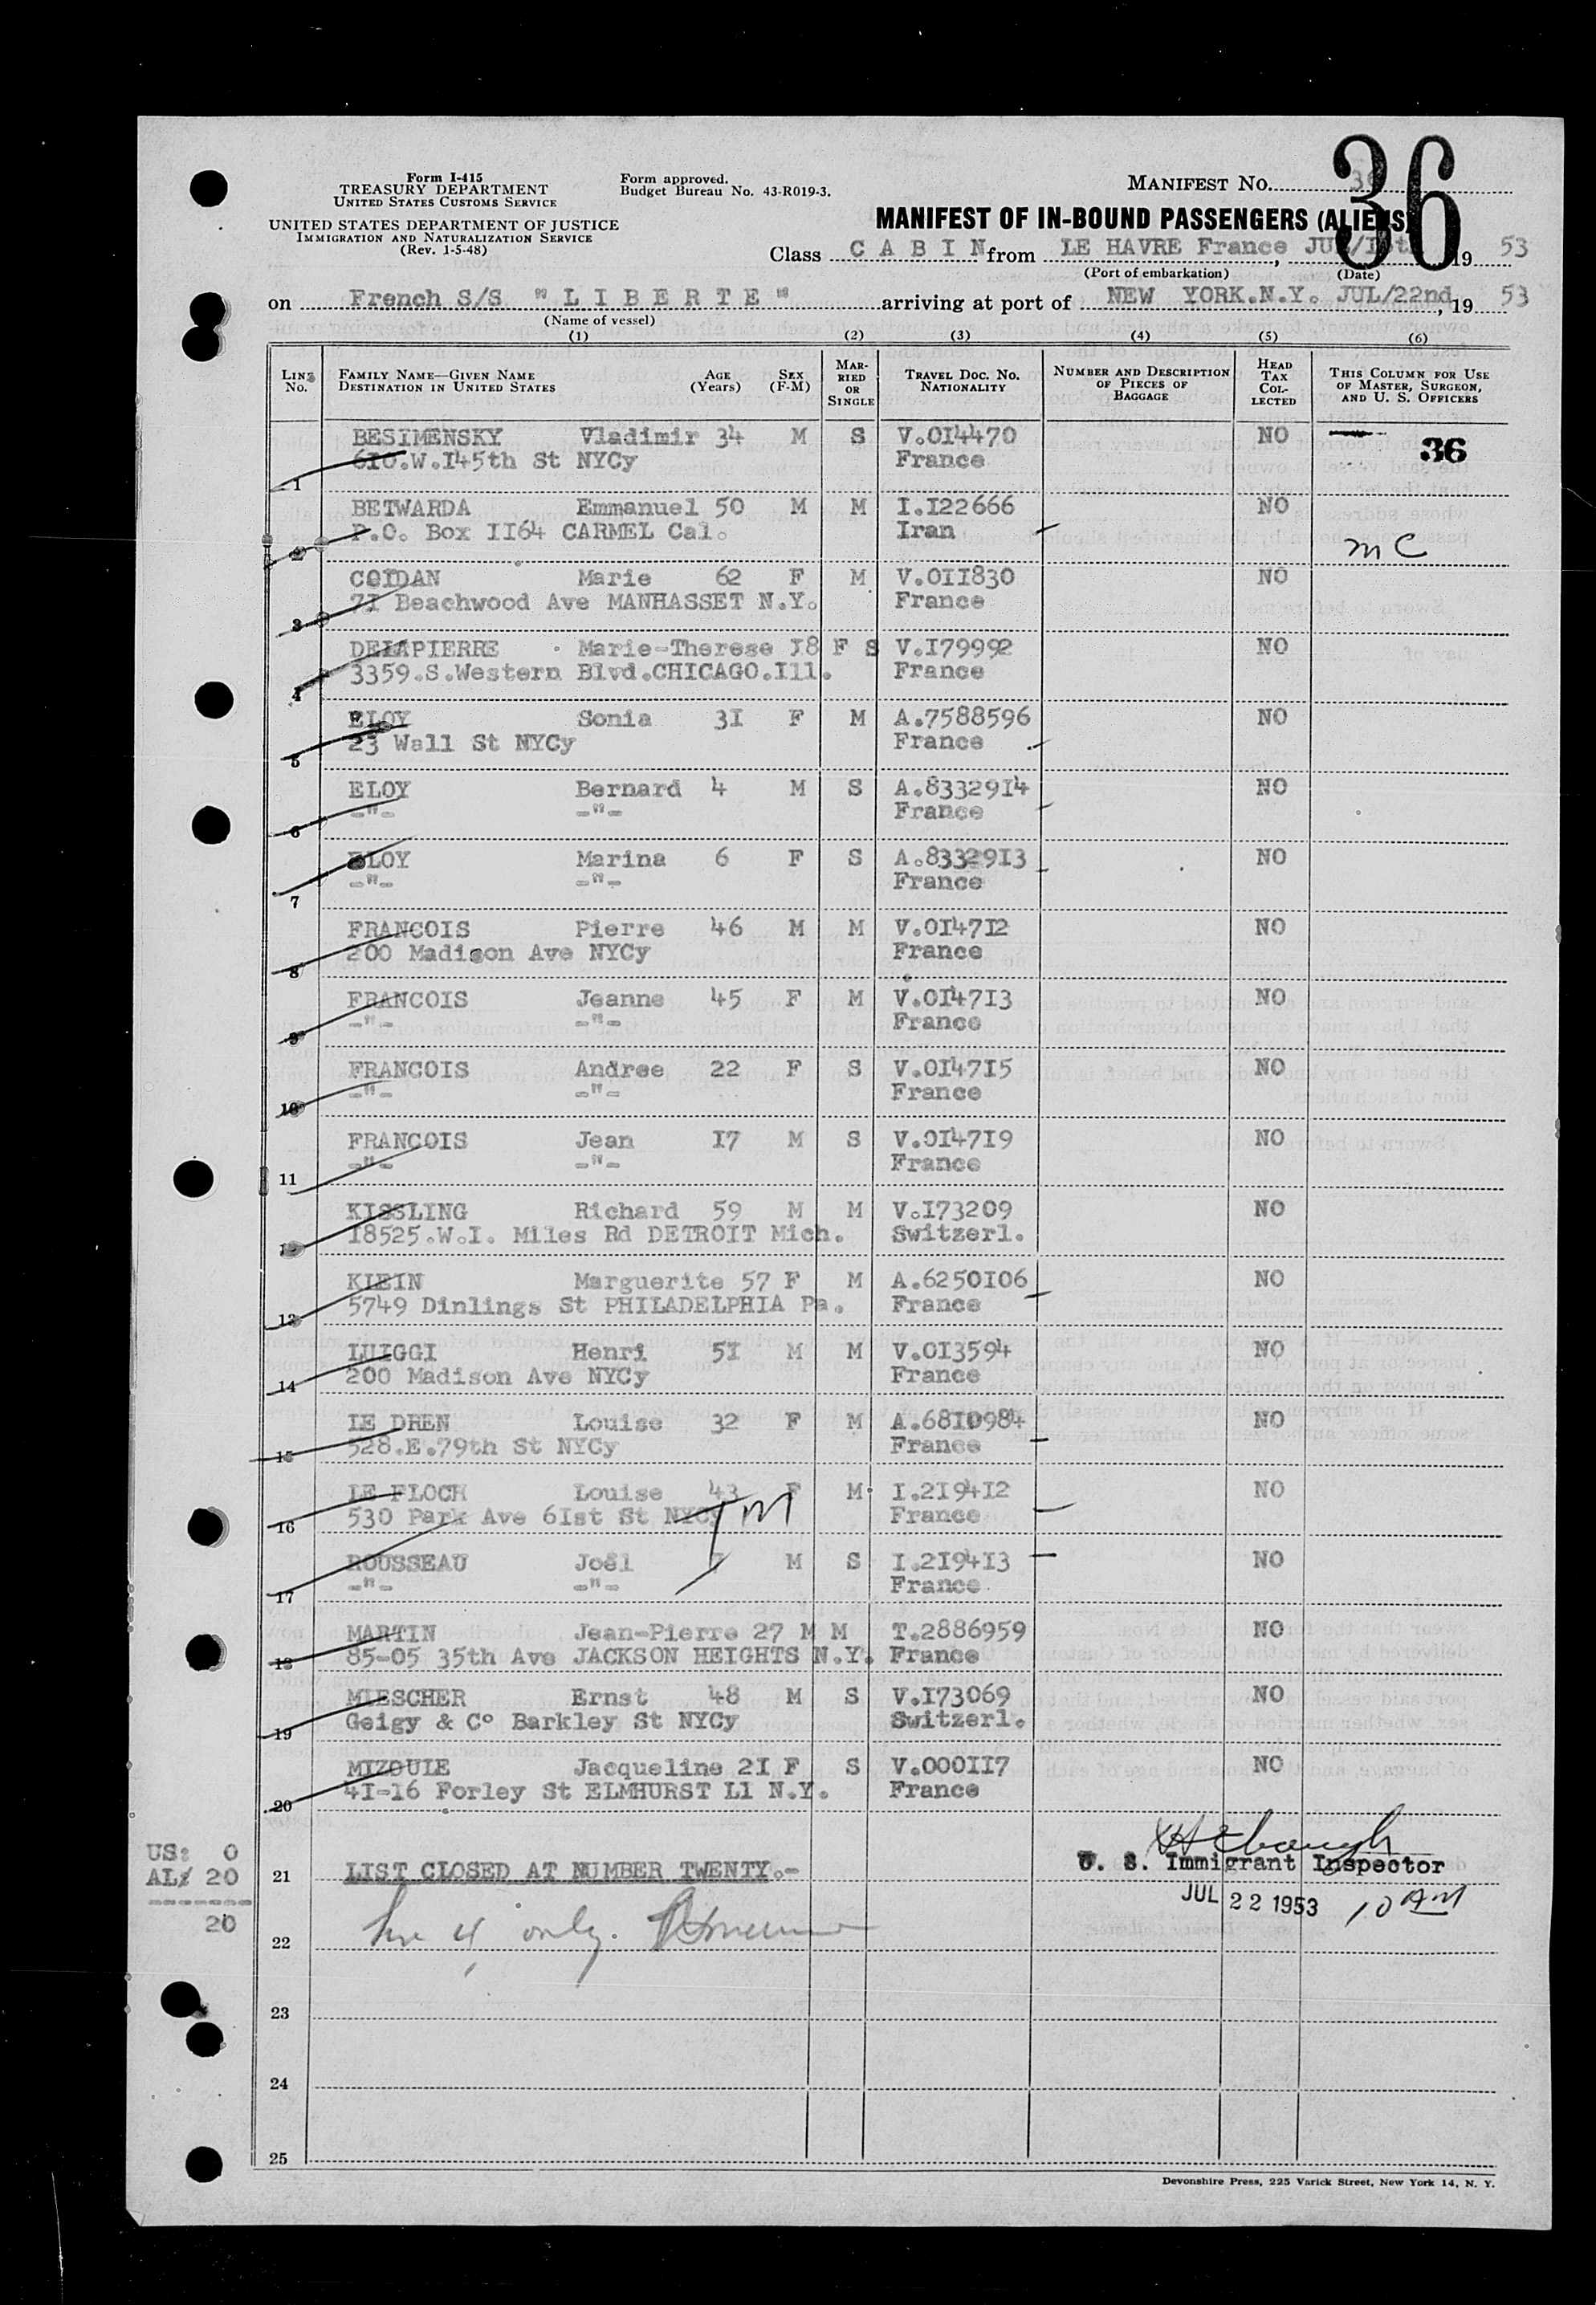 36
Form I-415
TREASURY DEPARTMENT
UNITED STATES CUSTOMS SERVICE
UNITED STATES DEPARTMENT OF JUSTICE
IMMIGRATION AND NATURALIZATION SERVICE
(Rev. 1-5-48)
Form approved.
Budget Bureau No. 43-R019-3.
MANIFEST NO.
MANIFEST OF IN-BOUND PASSENGERS (ALIENS)
Class C A B I N from LE HAVRE France 19 53
(Port of embarkation) (Date)
on French S/S "L I B E R T E" arriving at port of NEW YORK.N.Y. JUL/22nd, 19 53
(Name of vessel)
(1) (2) (3) (4) (5) (6)
LINE No. FAMILY NAME—GIVEN NAME DESTINATION IN UNITED STATES AGE (Years) SEX (F-M) MARRIED OR SINGLE TRAVEL DOC. NO. NATIONALITY NUMBER AND DESCRIPTION OF PIECES OF BAGGAGE HEAD TAX COLLECTED THIS COLUMN FOR USE OF MASTER, SURGEON, AND U. S. OFFICERS
BESIMENSKY Vladimir 34 M S V.0I4470 NO 36
1 6I0.W.I45th St NYCy France
BETWARDA Emmanuel 50 M M I.I22666 NO
2 P.O. Box II64 CARMEL Cal. Iran mc
COIDAN Marie 62 F M V.0II830 NO
3 7I Beachwood Ave MANHASSET N.Y. France
DELAPIERRE Marie-Therese I8 F S V.I79992 NO
4 3359.S.Western Blvd.CHICAGO.Ill. France
ELOY Sonia 3I F M A.7588596 NO
5 23 Wall St NYCy France
ELOY Bernard 4 M S A.83329I4 NO
6 -"- -"- France
ELOY Marina 6 F S A.83329I3 NO
7 -"- -"- France
FRANCOIS Pierre 46 M M V.0I47I2 NO
8 200 Madison Ave NYCy France
FRANCOIS Jeanne 45 F M V.0I47I3 NO
9 -"- -"- France
FRANCOIS Andree 22 F S V.0I47I5 NO
10 -"- -"- France
FRANCOIS Jean I7 M S V.0I47I9 NO
11 -"- -"- France
KISSLING Richard 59 M M V.I73209 NO
12 I8525.W.I. Miles Rd DETROIT Mich. Switzerl.
KLEIN Marguerite 57 F M A.6250I06 NO
13 5749 Dinlings St PHILADELPHIA Pa. France
LUIGGI Henri 5I M M V.0I3594 NO
14 200 Madison Ave NYCy France
LE DREN Louise 32 F M A.68I0984 NO
15 528.E.79th St NYCy France
LE FLOCH Louise 43 F M I.2I94I2 NO
16 530 Park Ave 6Ist St NYCy France
ROUSSEAU Joël 7 M S I.2I94I3 NO
17 -"- -"- France
MARTIN Jean-Pierre 27 M M T.2886959 NO
18 85-05 35th Ave JACKSON HEIGHTS N.Y. France
MIESCHER Ernst 48 M S V.I73069 NO
19 Geigy & C° Barkley St NYCy Switzerl.
MIZOULE Jacqueline 2I F S V.000II7 NO
20 4I-I6 Forley St ELMHURST L1 N.Y. France
US: 0
AL: 20
20
21 LIST CLOSED AT NUMBER TWENTY.-
U. S. Immigrant Inspector
JUL 22 1953 10 AM
22 only.
23
24
25
Devonshire Press, 225 Varick Street, New York 14, N. Y.